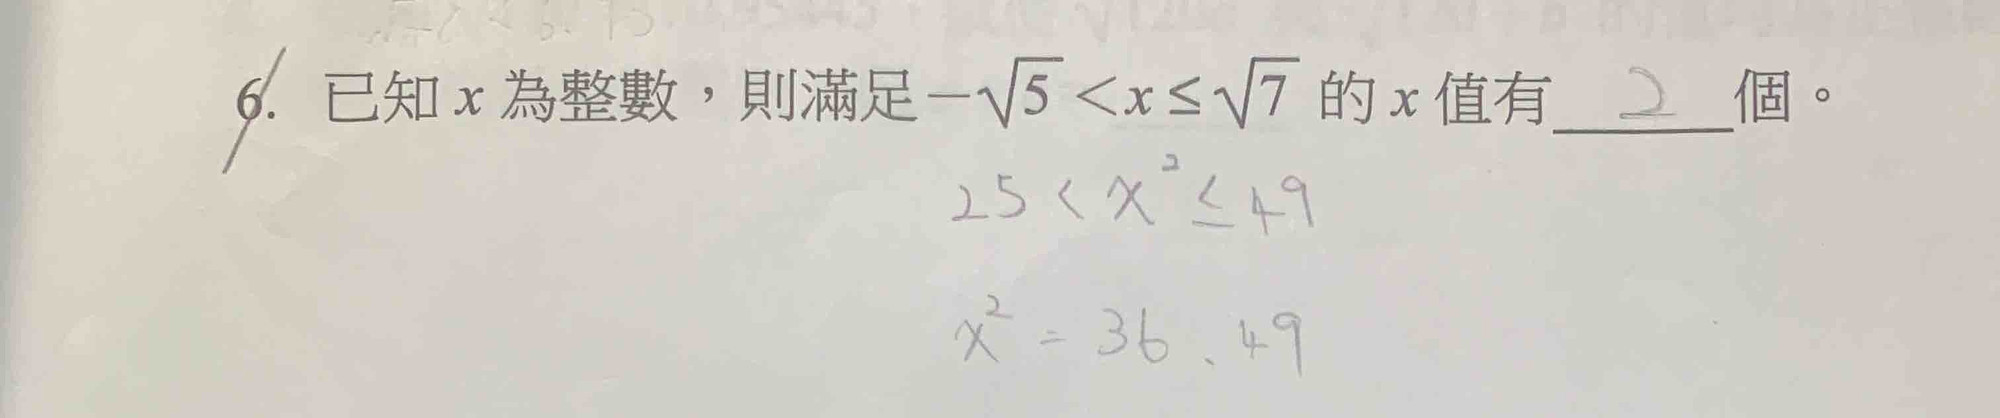 6. 已知 x 為整數，則滿足 −√5 < x ≤ √7 的 x 值有 2 個。
25 < x² ≤ 49
x² = 36、49